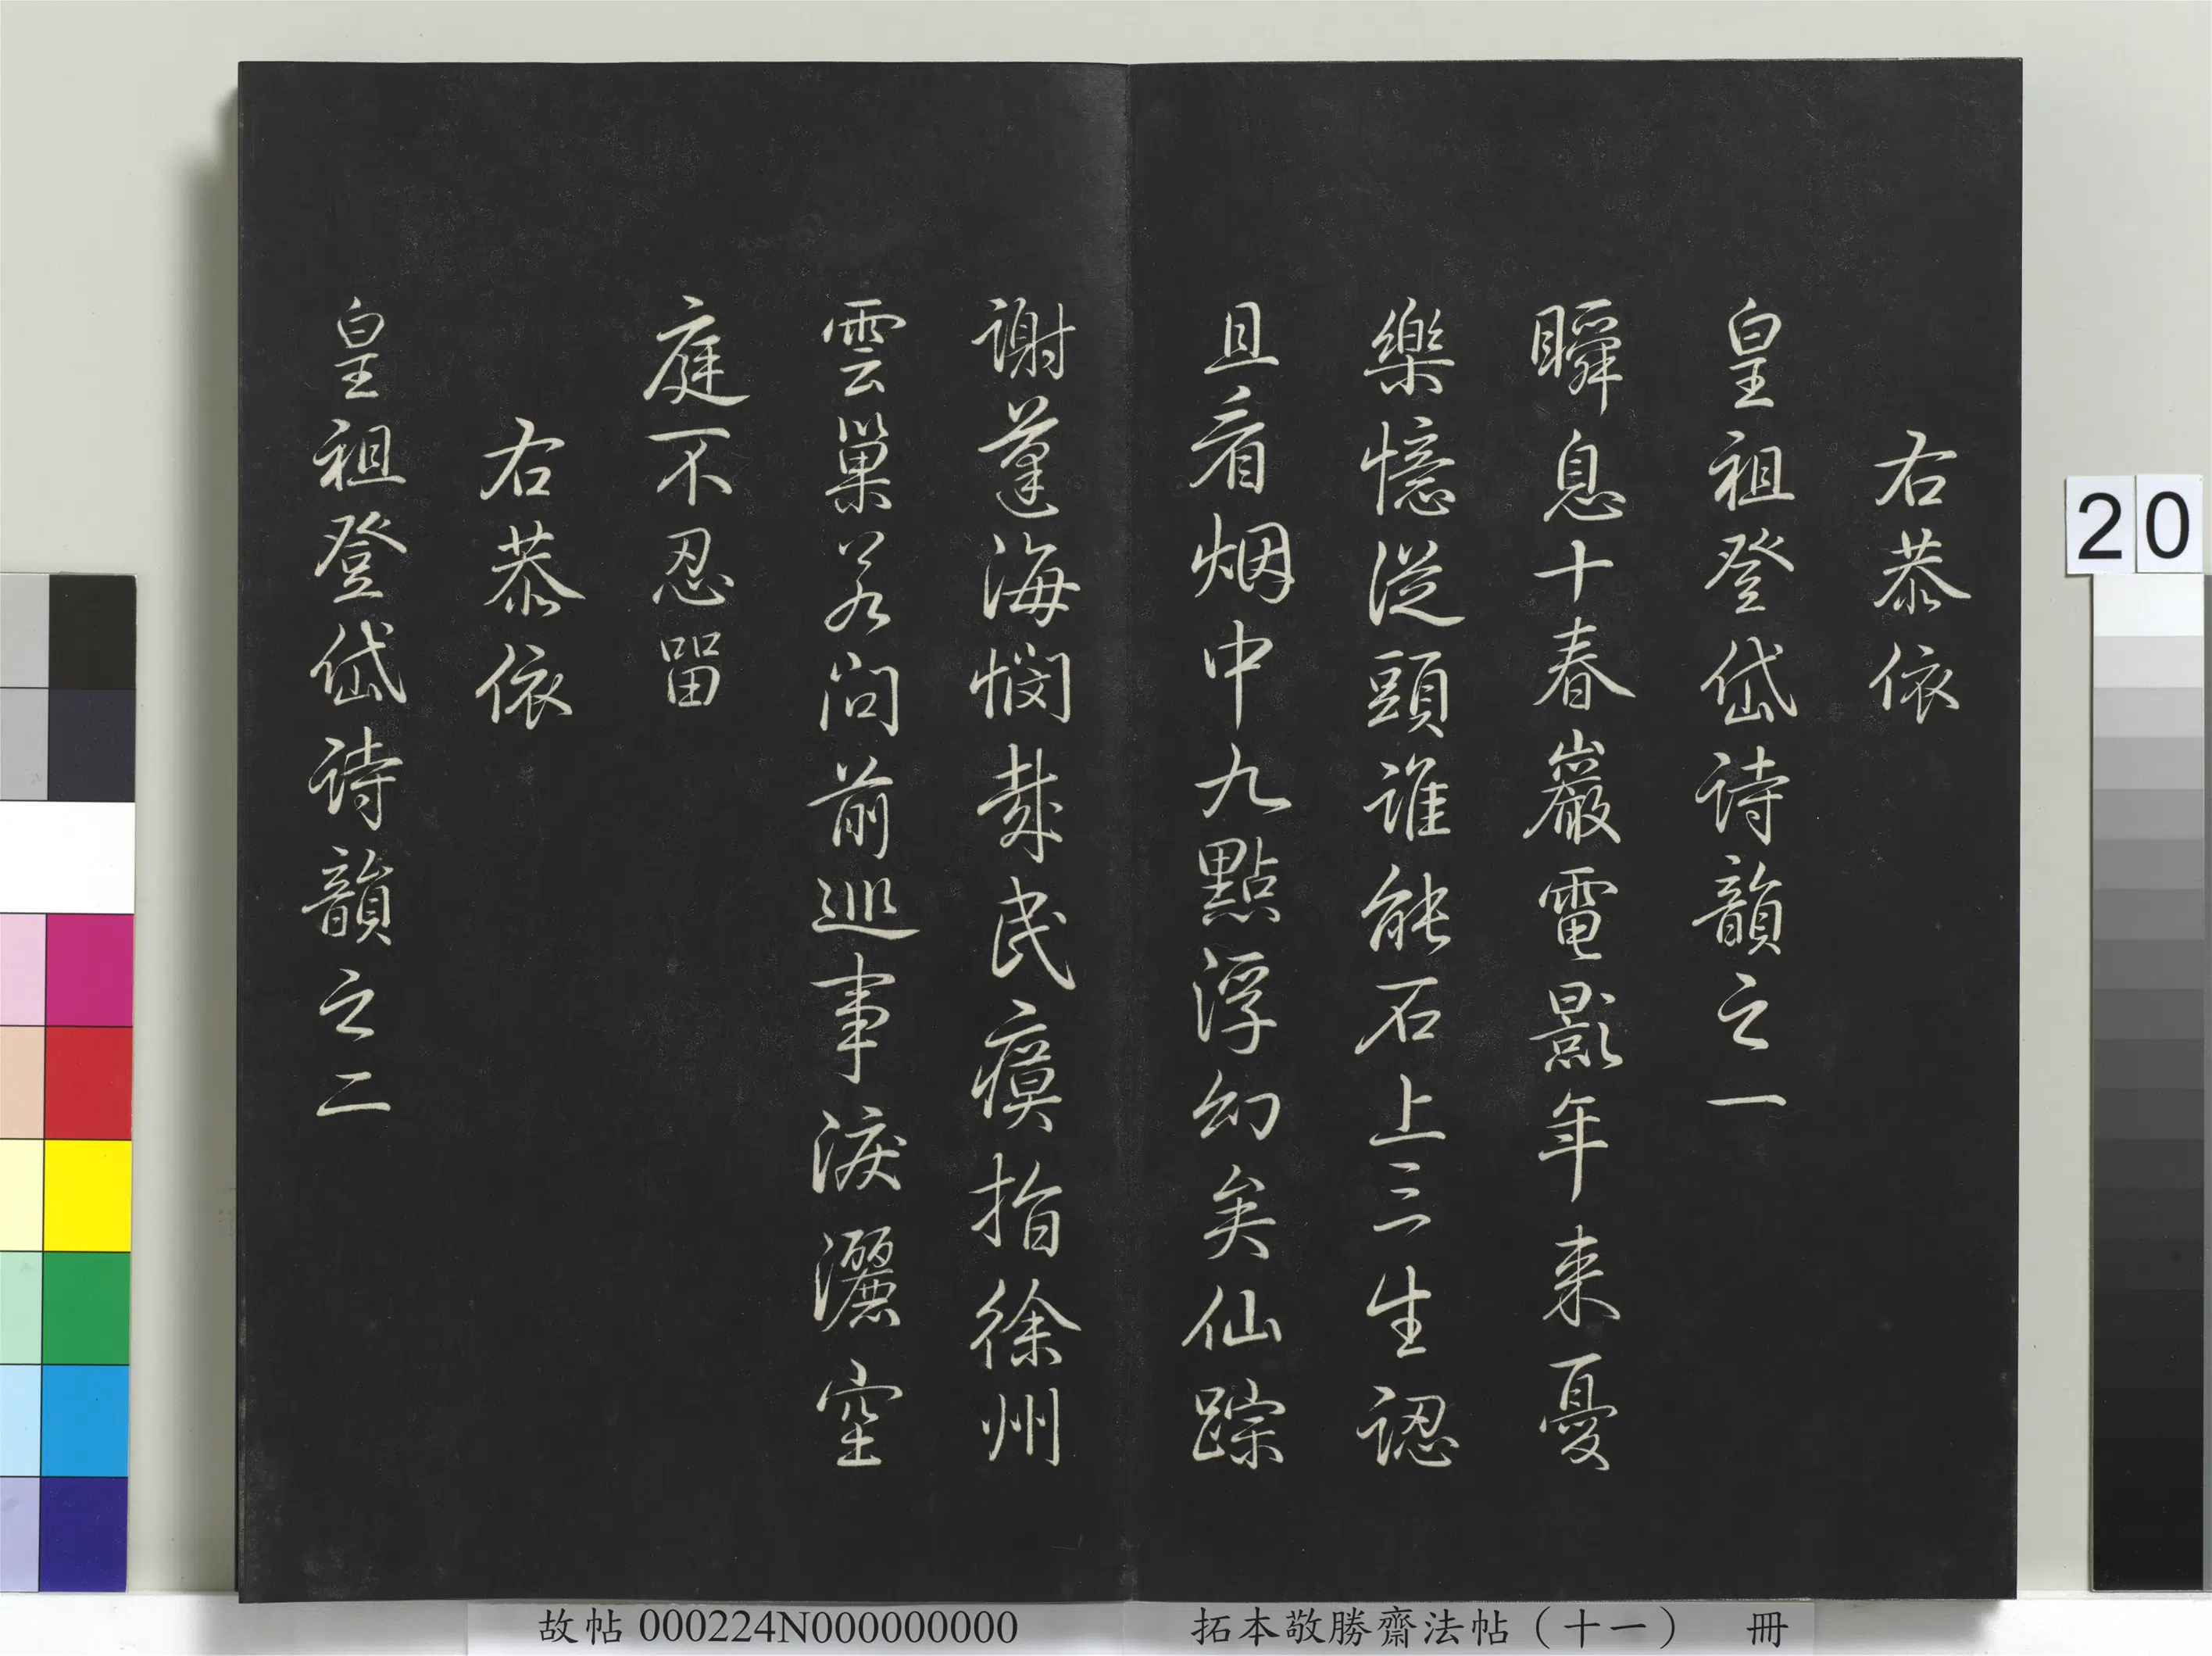 右恭依
皇祖登岱詩韻之一
瞬息十春巖電影年来憂
樂憶從頭誰能石上三生認
且看烟中九點浮幻矣仙踪
謝蓬海憫哉民瘼指徐州
雲巢若問前巡事淚灑空
庭不忍留
右恭依
皇祖登岱詩韻之二
20
故帖 000224N000000000
拓本敬勝齋法帖（十一） 冊